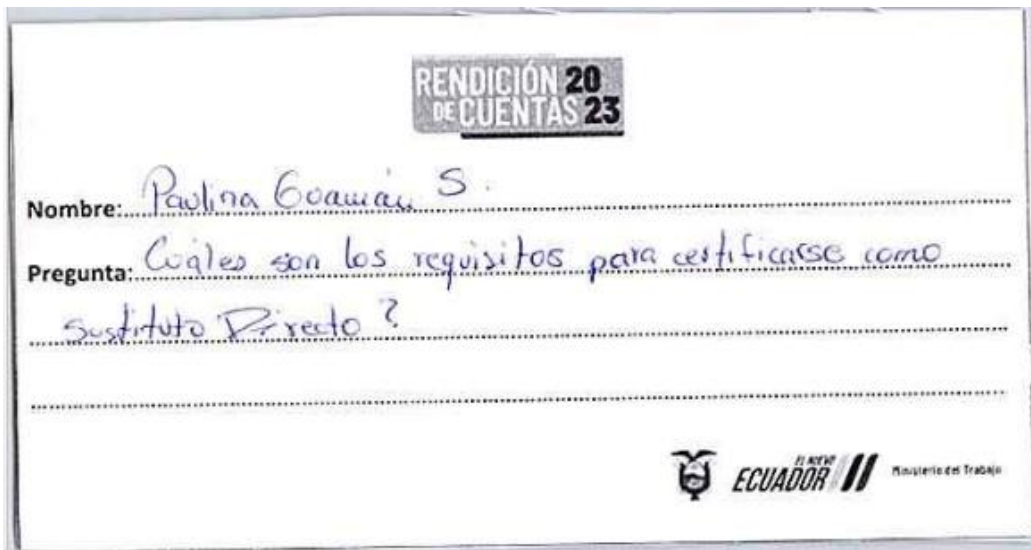 RENDICIÓN 20
DE CUENTAS 23
Nombre: Paulina Guamán S.
Pregunta: Cuáles son los requisitos para certificarse como
Sustituto Directo?
EL NUEVO
ECUADOR
Ministerio del Trabajo